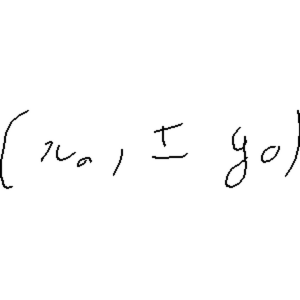 (x₀, ± y₀)